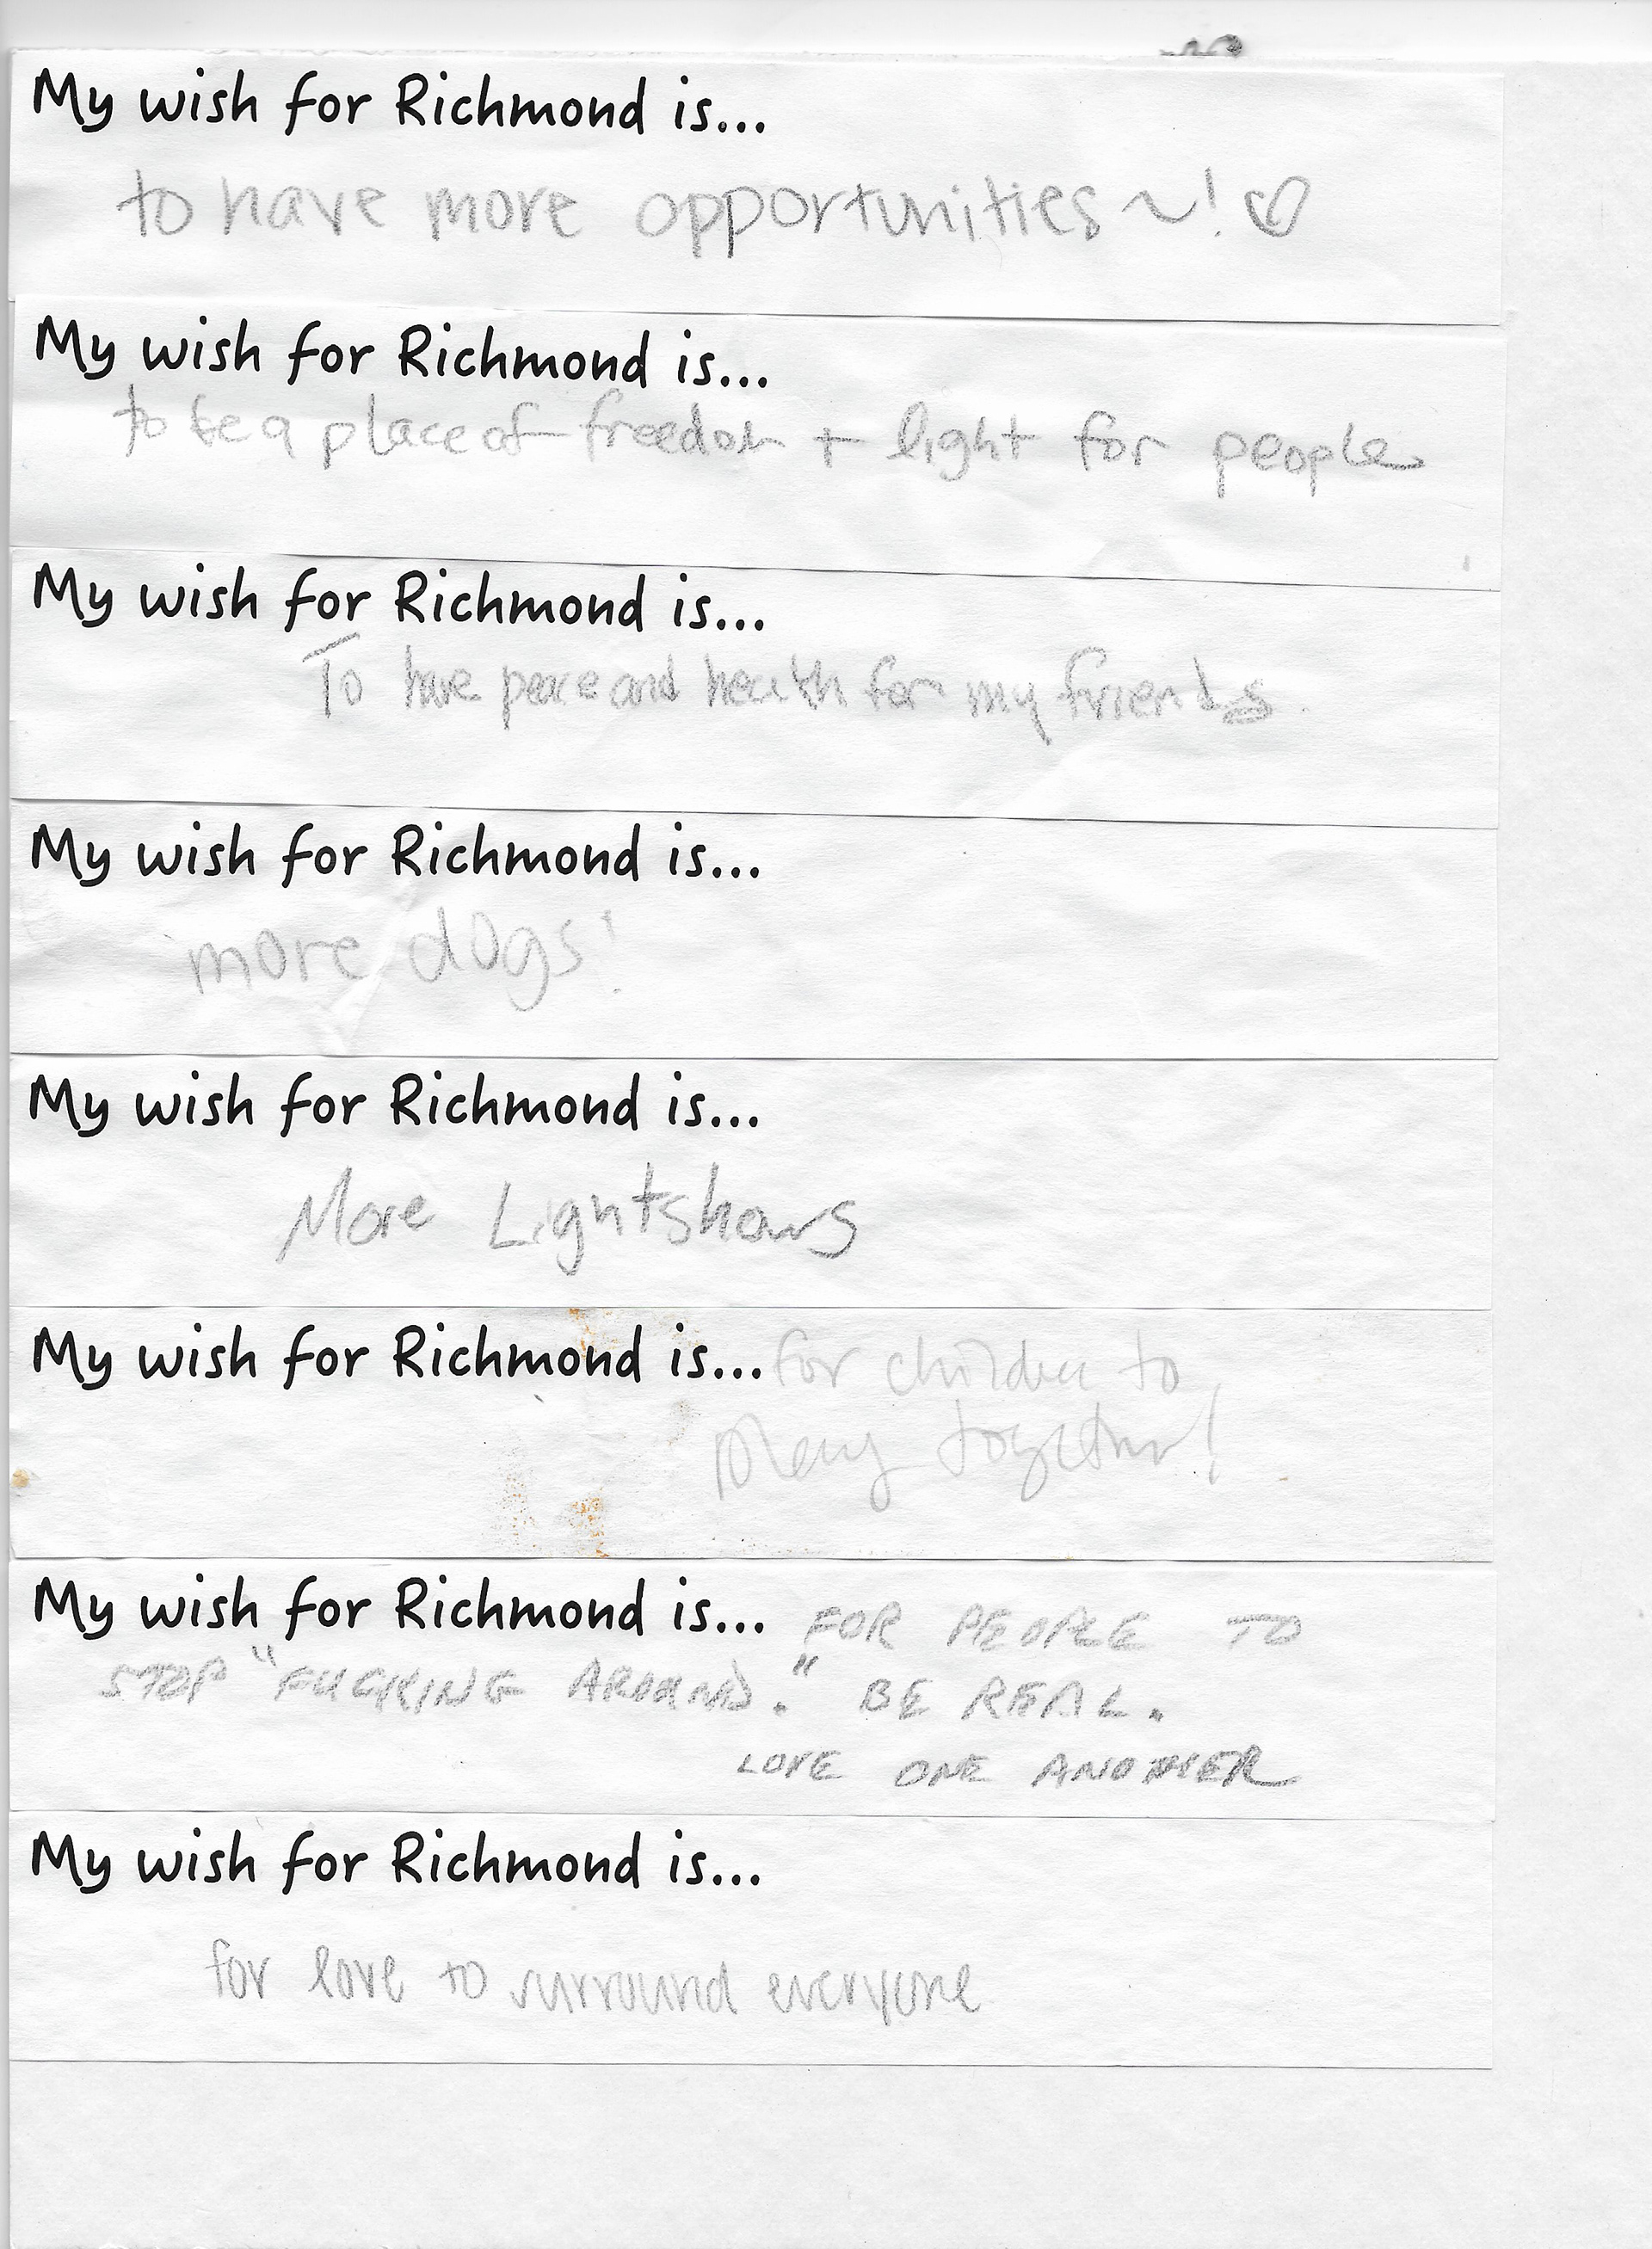 My wish for Richmond is...
to have more opportunities ~! ♡
My wish for Richmond is...
to be a place of freedom + light for people
My wish for Richmond is...
To have peace and health for my friends.
My wish for Richmond is...
more dogs!
My wish for Richmond is...
More Lightshows
My wish for Richmond is... for children to
play together!
My wish for Richmond is... FOR PEOPLE TO
STOP "FUCKING AROUND." BE REAL.
LOVE ONE ANOTHER
My wish for Richmond is...
for love to surround everyone